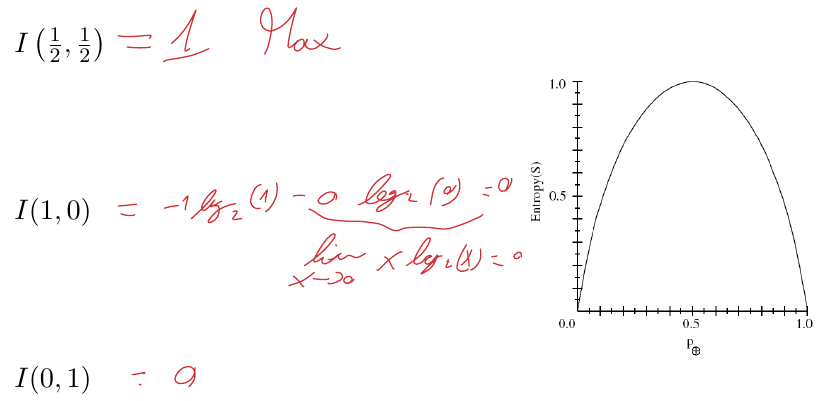 I(1/2, 1/2) = 1 Max
I(1,0) = -1 log₂(1) - 0 log₂(0) = 0
lim x→0 x log₂(x) = 0
I(0,1) = 0
1.0
0.5
Entropy(S)
0.0 0.5 1.0
p⊕